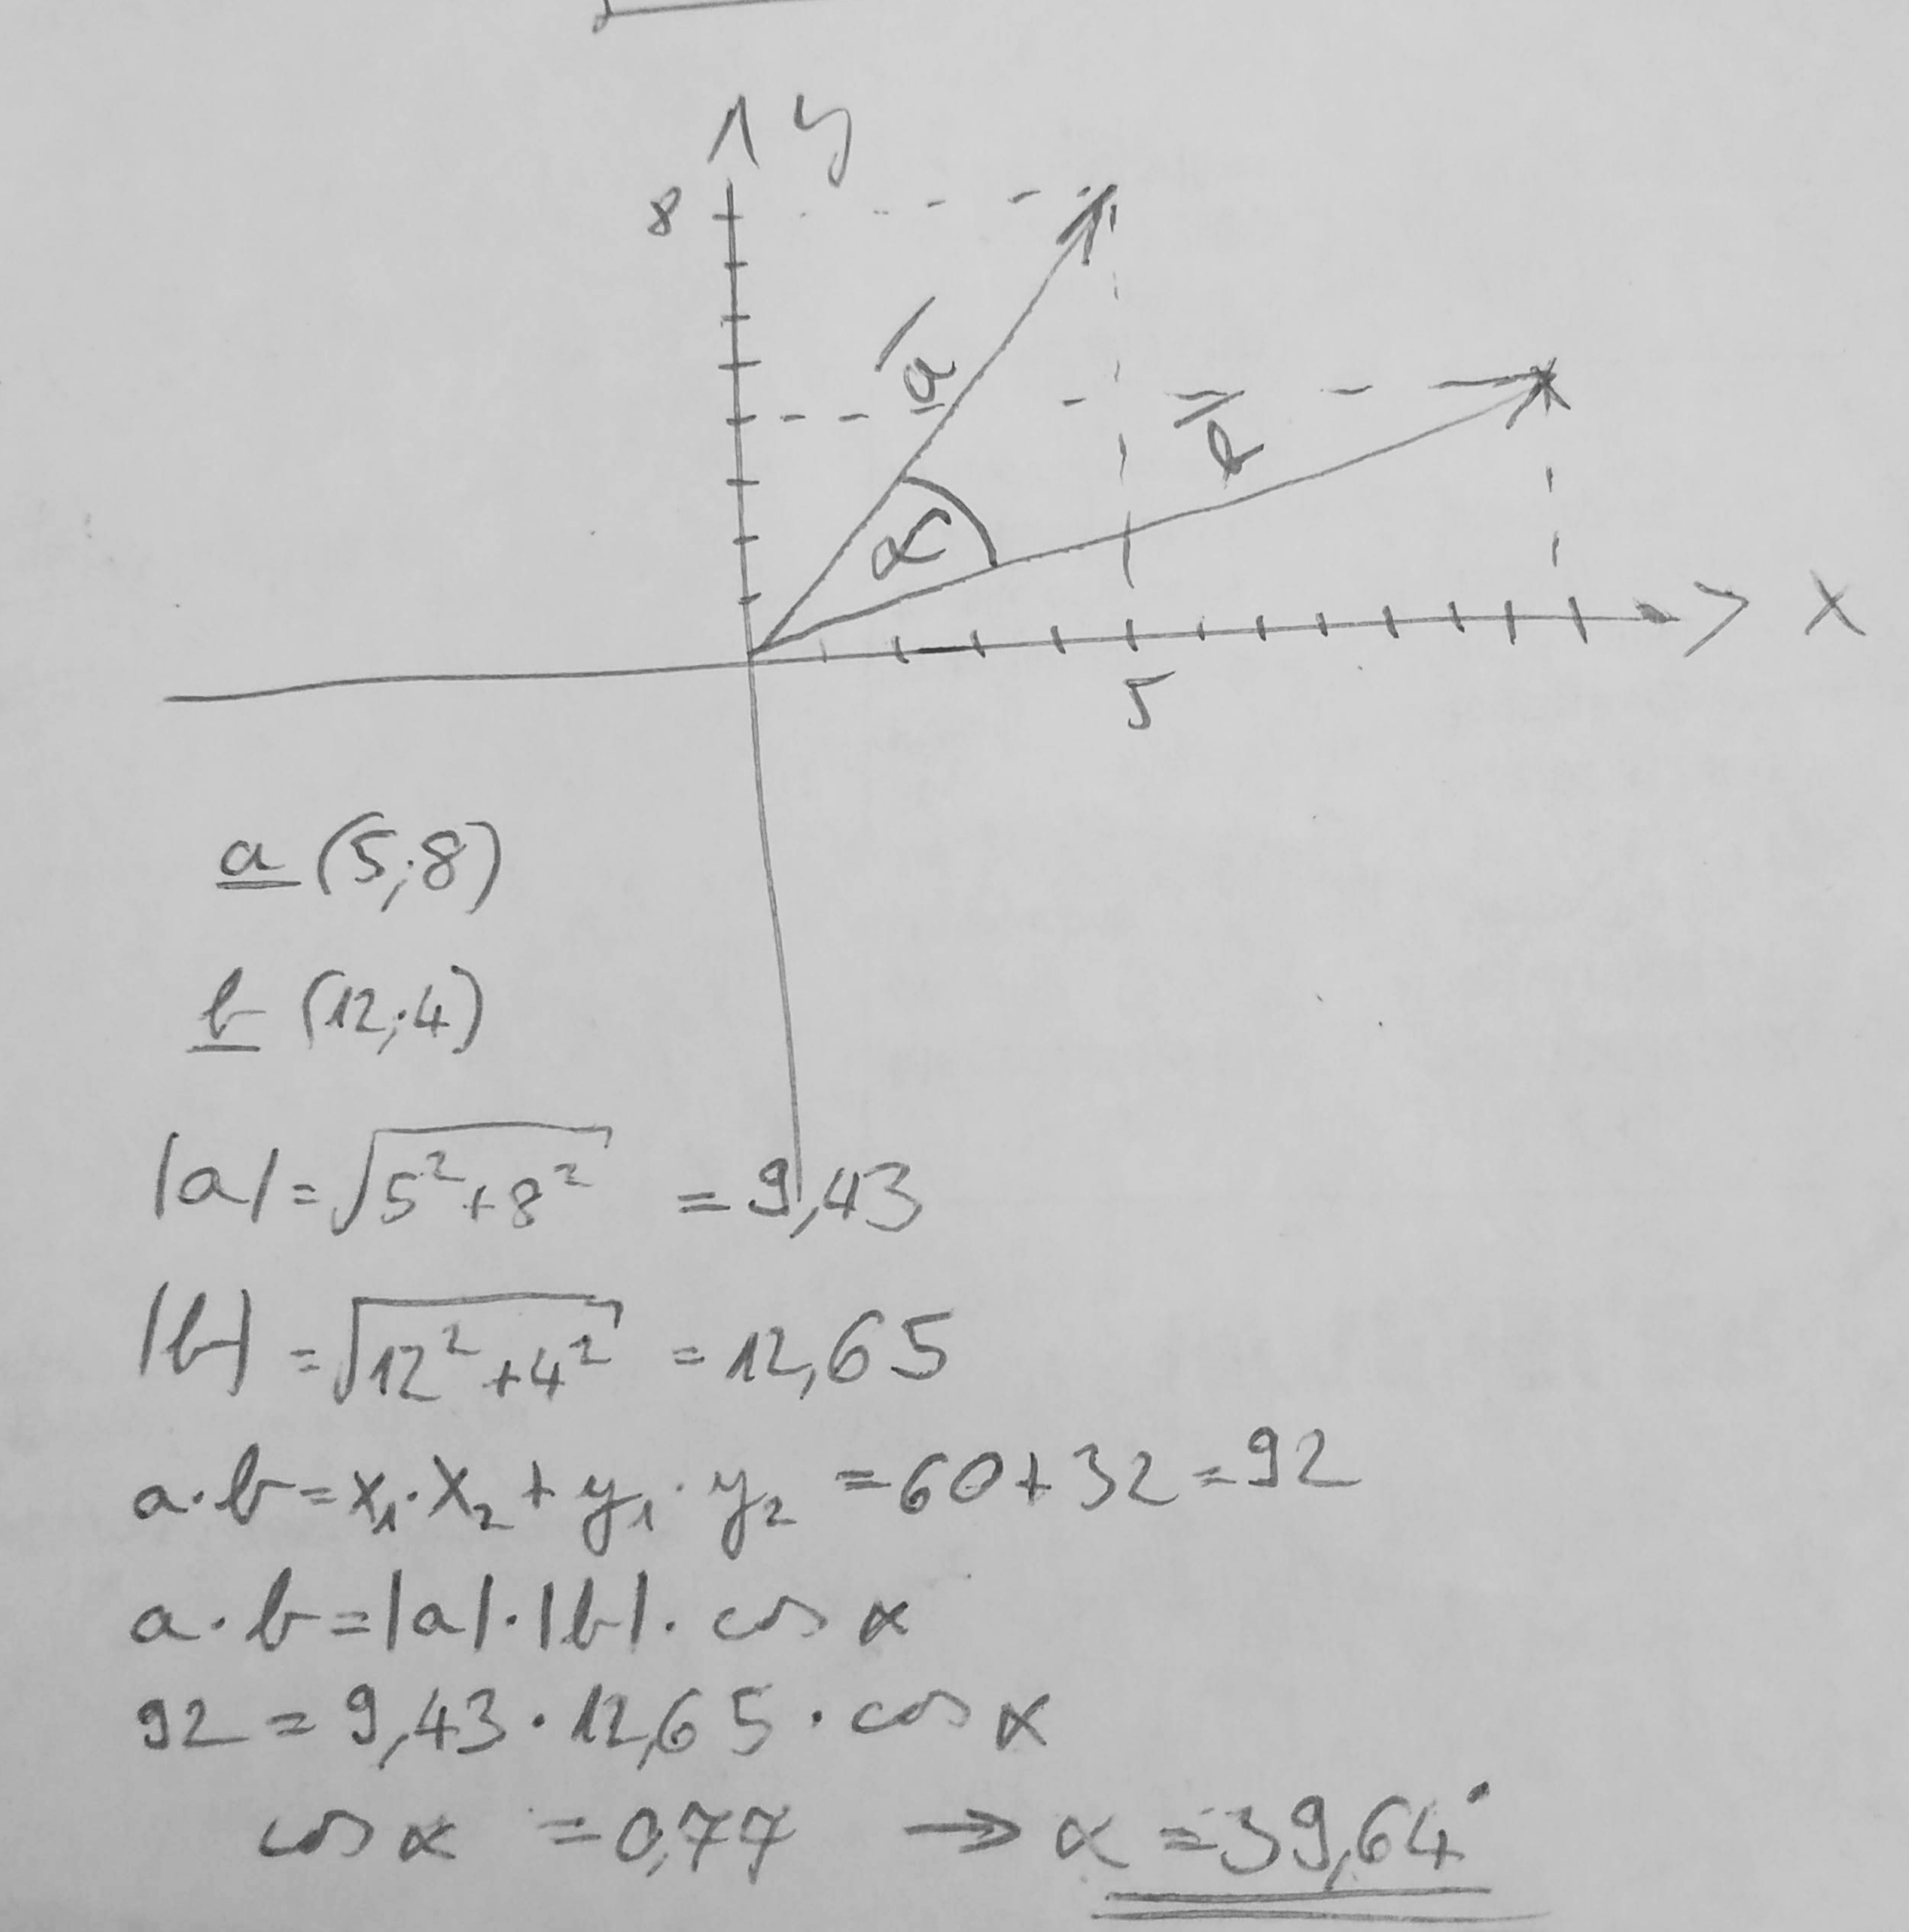 y
8
a
b
α
x
5
a (5;8)
b (12;4)
|a| = √5²+8² = 9,43
|b| = √12²+4² = 12,65
a·b = x₁·x₂ + y₁·y₂ = 60+32 = 92
a·b = |a|·|b|· cos α
92 = 9,43 · 12,65 · cos α
cos α = 0,77 → α = 39,64°